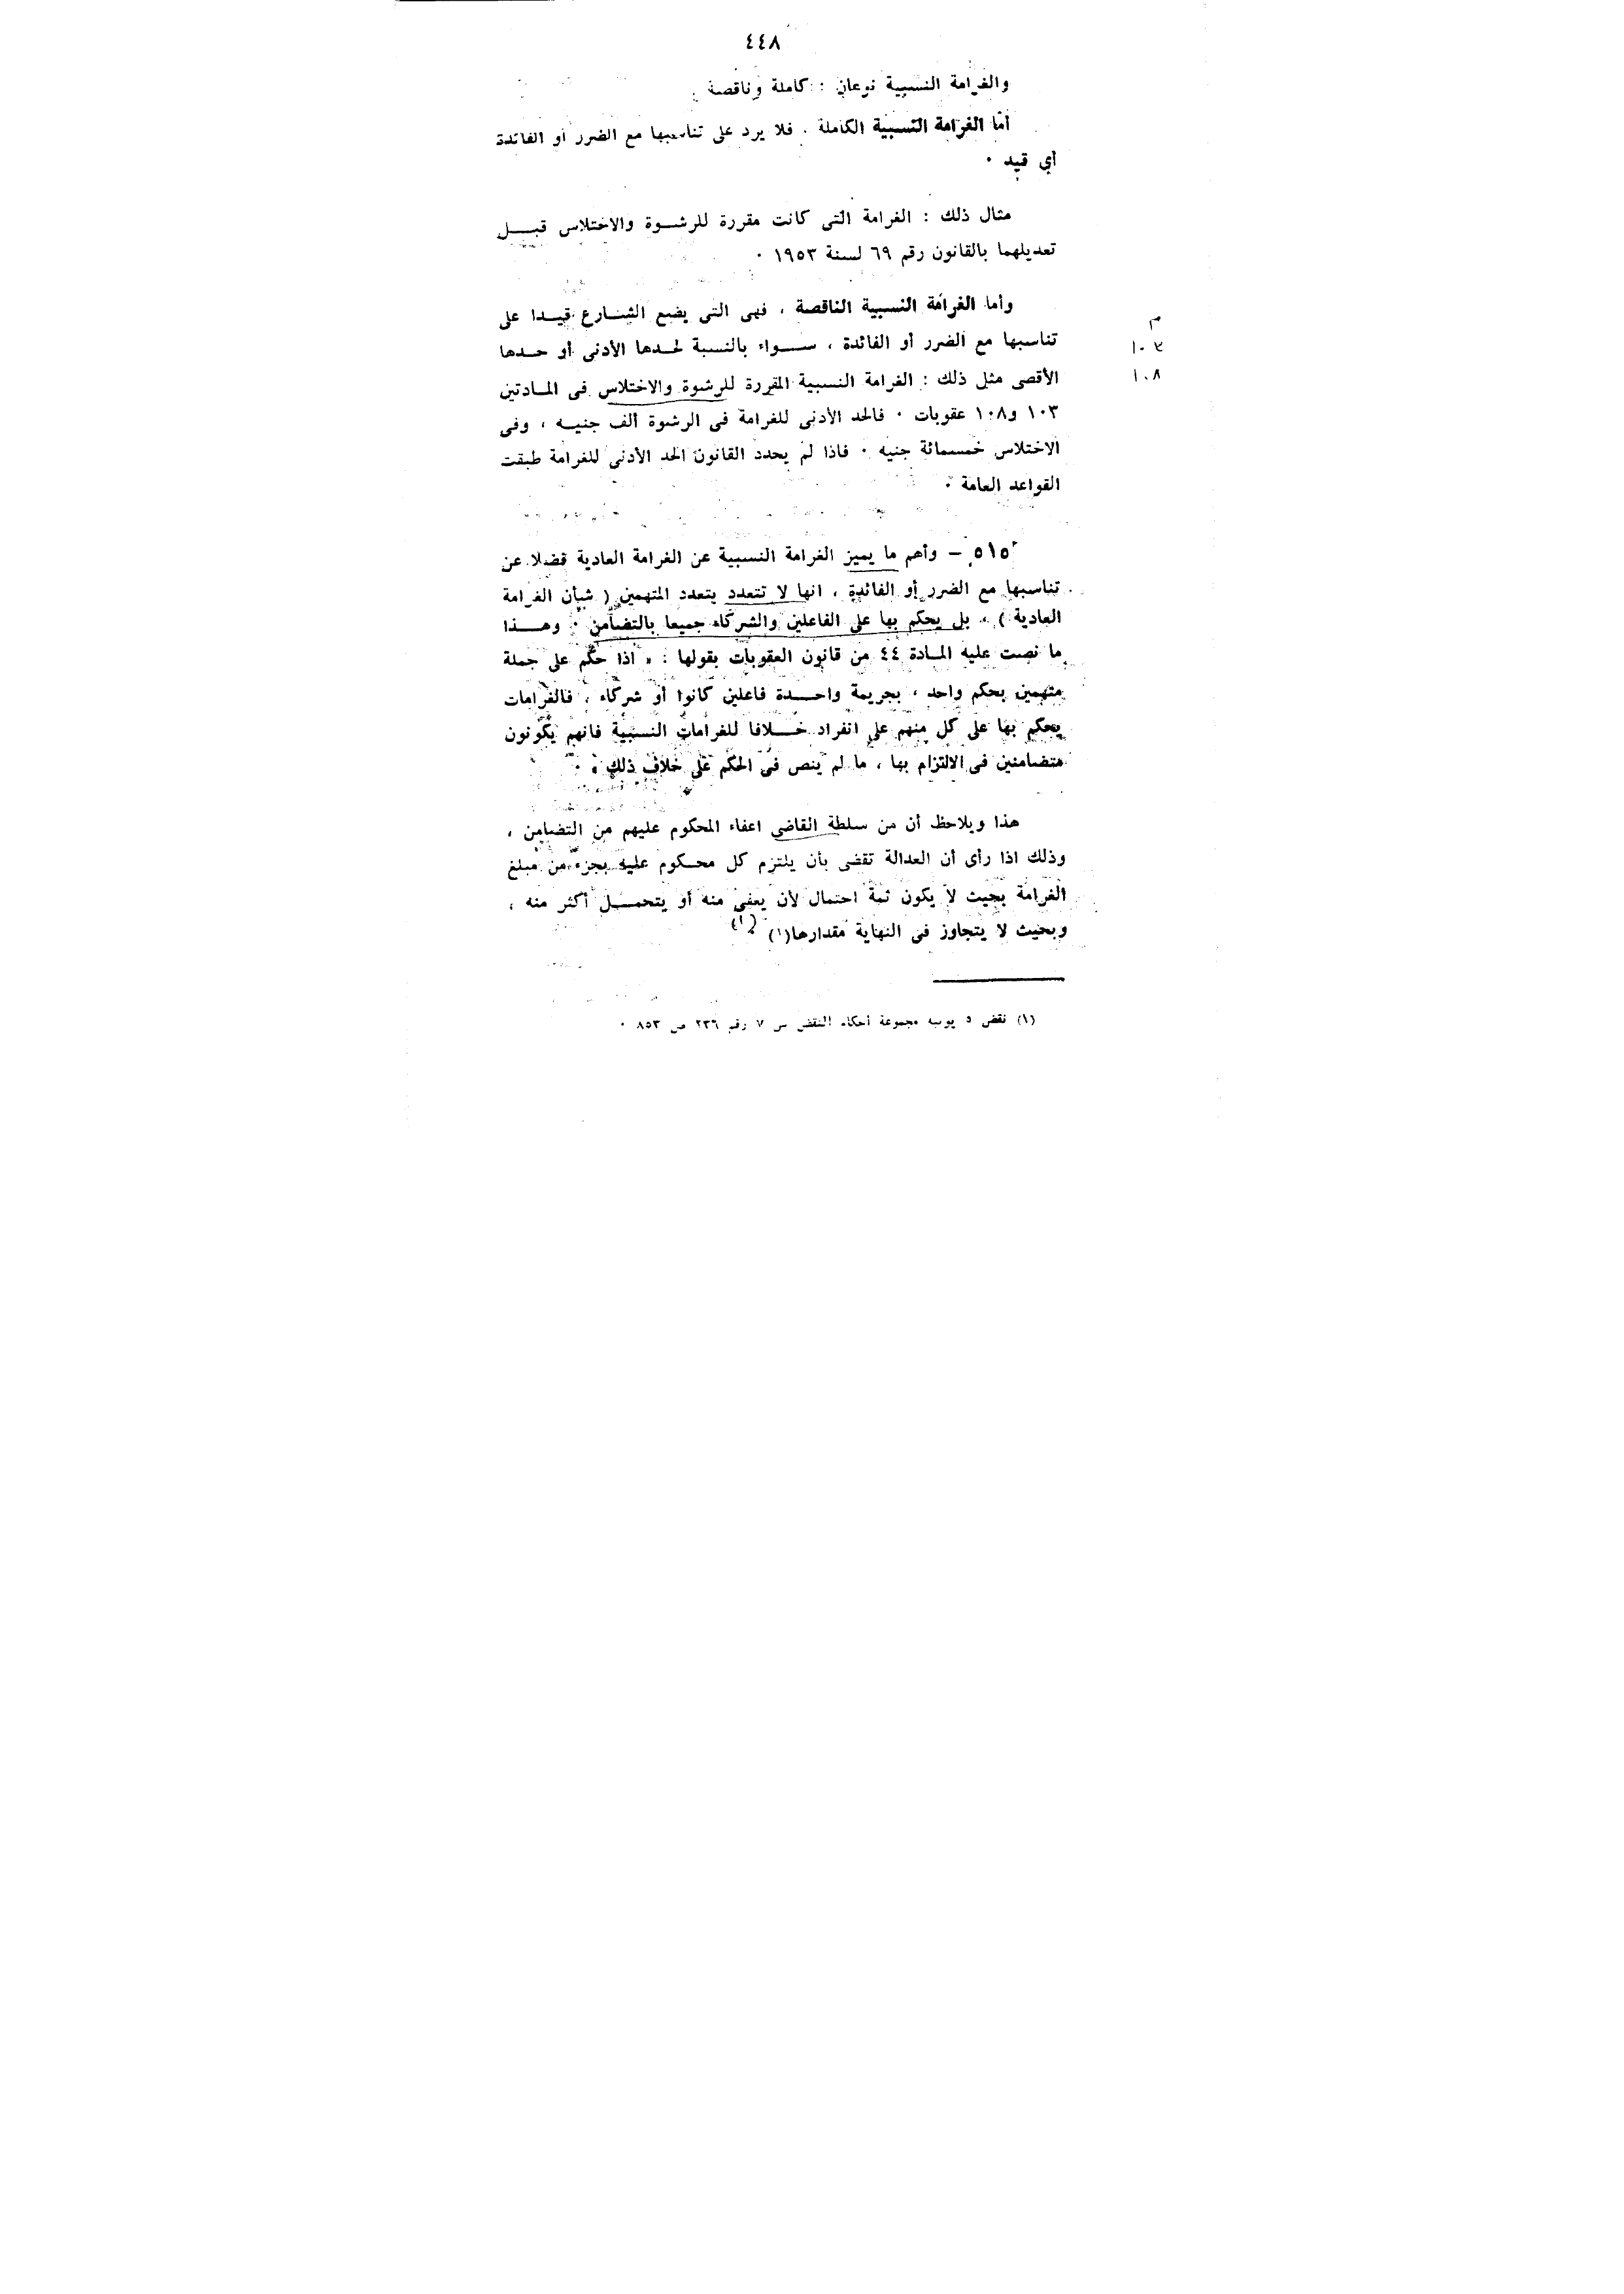 ٤٤٨
والغرامة النسبية نوعان : كاملة وناقصة .
أما الغرامة النسبية الكاملة . فلا يرد على تناسبها مع الضرر أو الفائدة
أي قيد .
مثال ذلك : الغرامة التى كانت مقررة للرشوة والاختلاس قبل
تعديلهما بالقانون رقم ٦٩ لسنة ١٩٥٣ .
وأما الغرامة النسبية الناقصة ، فهى التى يضع الشارع قيدا على
م
تناسبها مع الضرر أو الفائدة ، سواء بالنسبة لحدها الأدنى أو حدها
١٠٣
الأقصى مثل ذلك : الغرامة النسبية المقررة للرشوة والاختلاس فى المادتين
١٠٨
١٠٣ و١٠٨ عقوبات . فالحد الأدنى للغرامة فى الرشوة ألف جنيه ، وفى
الاختلاس خمسمائة جنيه . فاذا لم يحدد القانون الحد الأدنى للغرامة طبقت
القواعد العامة .
٥١٥ – وأهم ما يميز الغرامة النسبية عن الغرامة العادية فضلا عن
تناسبها مع الضرر أو الفائدة ، انها لا تتعدد بتعدد المتهمين ( شأن الغرامة
العادية ) ، بل يحكم بها على الفاعلين والشركاء جميعا بالتضامن . وهذا
ما نصت عليه المادة ٤٤ من قانون العقوبات بقولها : « اذا حكم على جملة
متهمين بحكم واحد ، بجريمة واحدة فاعلين كانوا أو شركاء ، فالغرامات
يحكم بها على كل منهم على انفراد خلافا للغرامات النسبية فانهم يكونون
متضامنين فى الالتزام بها ، ما لم ينص فى الحكم على خلاف ذلك » .
هذا ويلاحظ أن من سلطة القاضى اعفاء المحكوم عليهم من التضامن ،
وذلك اذا رأى أن العدالة تقضى بأن يلتزم كل محكوم عليه بجزء من مبلغ
الغرامة بحيث لا يكون ثمة احتمال لأن يعفى منه أو يتحمل أكثر منه ،
وبحيث لا يتجاوز فى النهاية مقدارها(١) . (١)
(١) نقض ٥ يونيه مجموعة أحكام النقض س ٧ رقم ٢٣٦ ص ٨٥٣ .